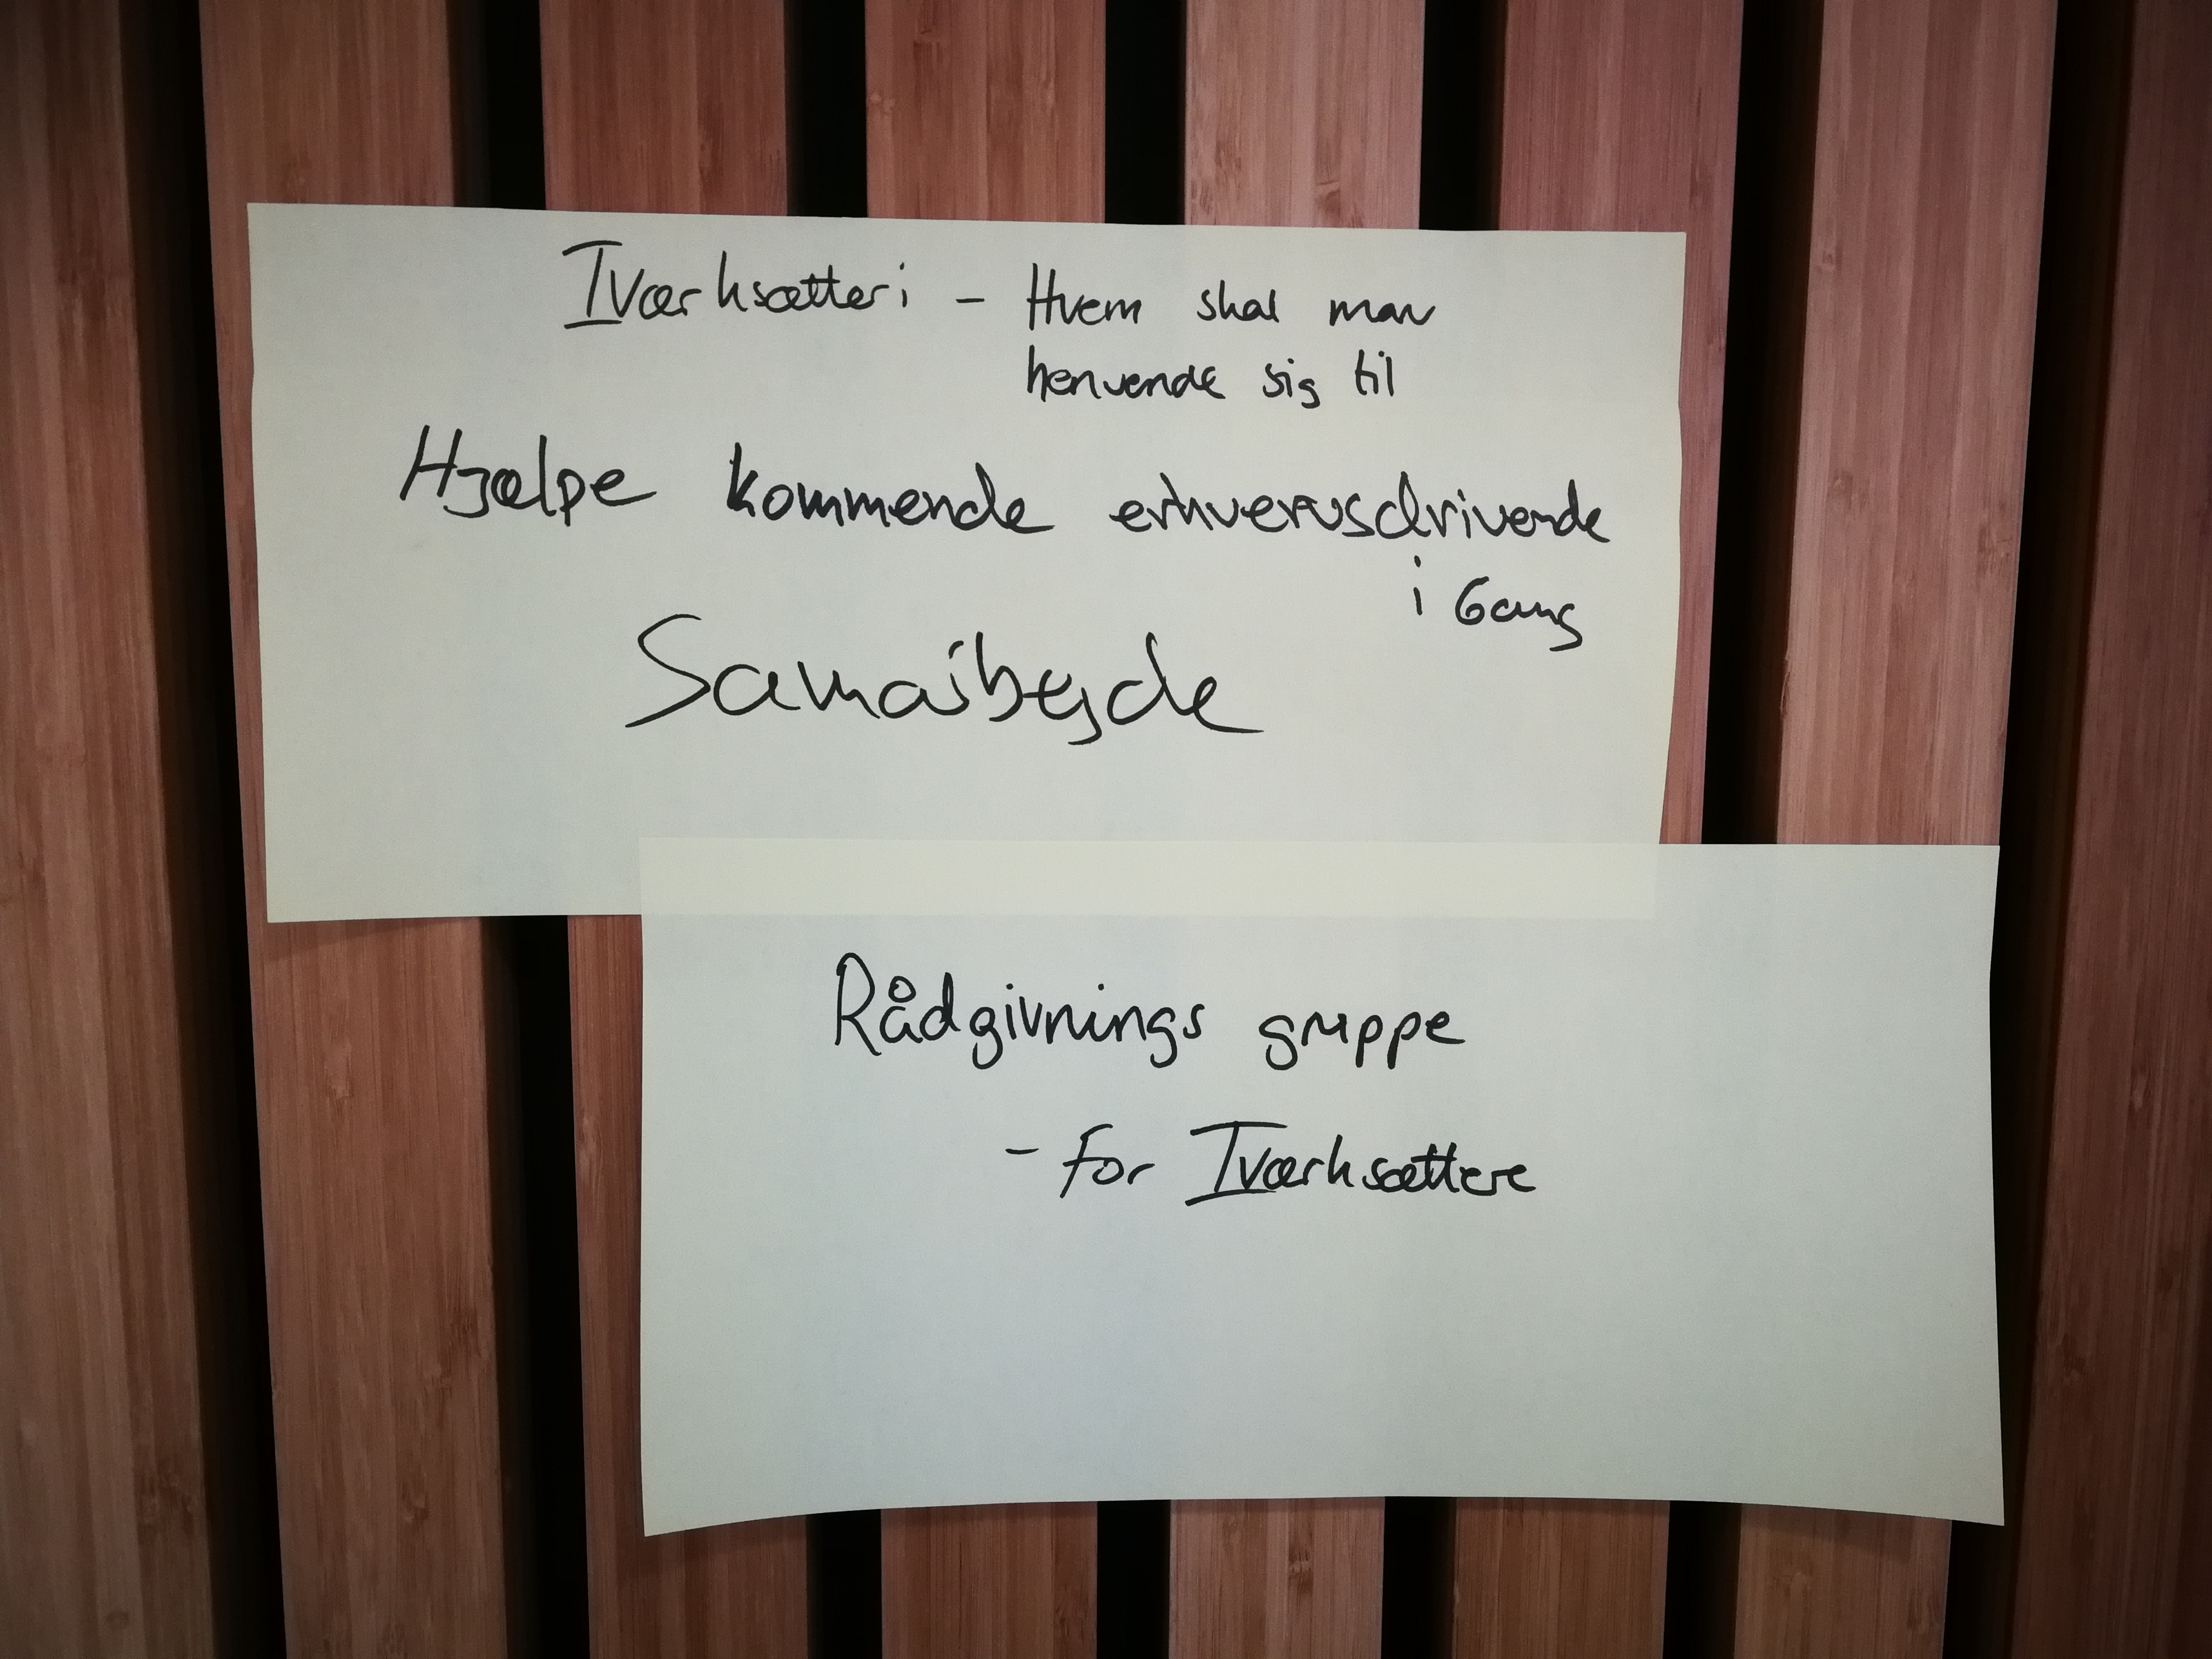 Iværksætteri - Hvem skal man
henvende sig til
Hjælpe kommende erhvervsdrivende
i Gang
Samarbejde
Rådgivnings gruppe
- for Iværksættere